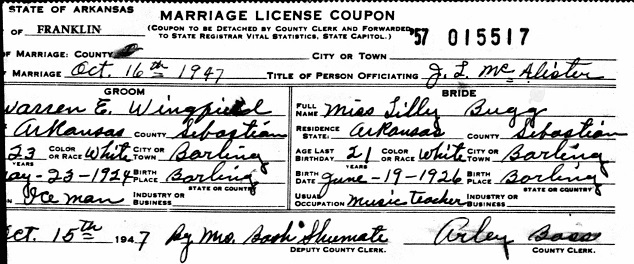 STATE OF ARKANSAS
MARRIAGE LICENSE COUPON
OF FRANKLIN
(COUPON TO BE DETACHED BY COUNTY CLERK AND FORWARDED
TO STATE REGISTRAR VITAL STATISTICS, STATE CAPITOL.)
'57 015517
OF MARRIAGE: COUNTY CITY OR TOWN
MARRIAGE Oct. 16th 1947 TITLE OF PERSON OFFICIATING J. L. McAlister
GROOM
Warren E. Wingfield
Arkansas COUNTY Sebastian
23 YEARS COLOR OR RACE White CITY OR TOWN Barling
ay-23-1924 BIRTH PLACE Barling
STATE OR COUNTRY
ON Ice man INDUSTRY OR BUSINESS
BRIDE
FULL NAME Miss Lilly Bugg
RESIDENCE STATE: Arkansas COUNTY Sebastian
AGE LAST BIRTHDAY 21 YEARS COLOR OR RACE White CITY OR TOWN Barling
BIRTH DATE June-19-1926 BIRTH PLACE Barling
STATE OR COUNTRY
USUAL OCCUPATION Music teacher INDUSTRY OR BUSINESS
Oct. 15th 1947 By Mrs. Bash Shumate Arley Bass
DEPUTY COUNTY CLERK. COUNTY CLERK.